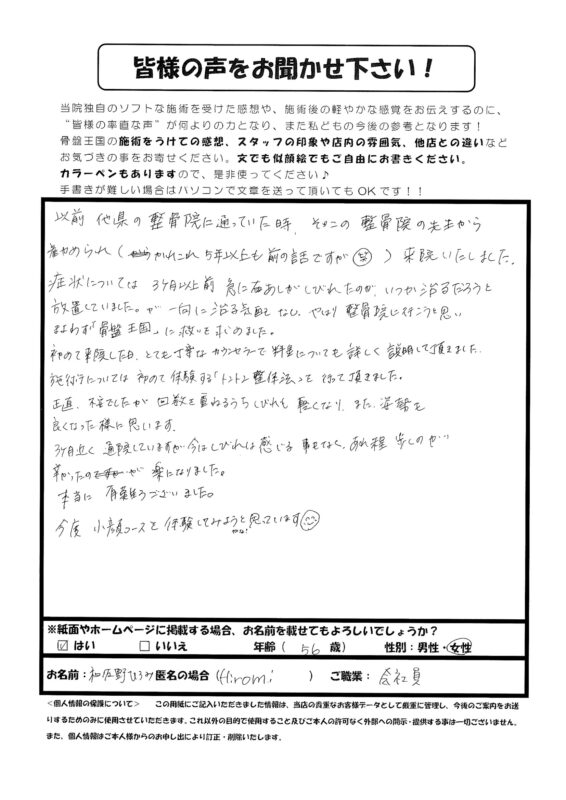 皆様の声をお聞かせ下さい！
当院独自のソフトな施術を受けた感想や、施術後の軽やかな感覚をお伝えするのに、
“皆様の率直な声”が何よりの力となり、また私どもの今後の参考となります！
骨盤王国の施術をうけての感想、スタッフの印象や店内の雰囲気、他店との違いなど
お気づきの事をお寄せください。文でも似顔絵でもご自由にお書きください。
カラーペンもありますので、是非使ってください♪
手書きが難しい場合はパソコンで文章を送って頂いてもOKです！！
以前 他県の整骨院に通っていた時、そこの整骨院の先生から
進められ（かれこれ5年以上も前の話ですが）来院いたしました。
症状については 3ヶ月以上前 急に右あしがしびれたのが、いつか治るだろうと
放置していました。が 一向に治る気配もなし、やはり整骨院に行こうと思い
まよわず「骨盤王国」に救いを求めました。
初めて来院した日、とても丁寧なカウンセラーで料金についても詳しく説明して頂きました。
施術については 初めて体験する「トントン整体法」って行って頂きました。
正直、不安でしたが 回数を重ねるうちしびれも軽くなり、また、姿勢も
良くなった様に思います。
3ヶ月近く通院していますが今はしびれは感じる事もなく、あれ程 歩くのが
辛かったのが 楽になりました。
本当に 有難うございました。
今度 小顔コースを体験してみようかな！と思っています
※紙面やホームページに掲載する場合、お名前を載せてもよろしいでしょうか？
☑ はい □ いいえ 年齢（ 56 歳） 性別：男性・女性
お名前：和佐野ひろみ 匿名の場合（Hiromi ） ご職業：会社員
＜個人情報の保護について＞ この用紙にご記入いただきました情報は、当店の貴重なお客様データとして厳重に管理し、今後のご案内をお送
りするためのみに使用させていただきます。これ以外の目的で使用すること及びご本人の許可なく外部への開示・提供する事は一切ございません。
また、個人情報はご本人様からのお申し出により訂正・削除いたします。